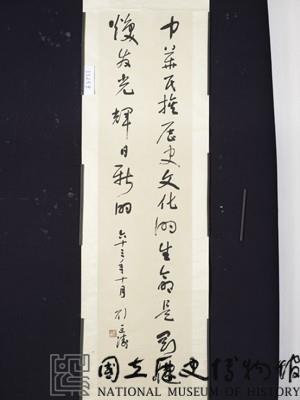 中華民族歷史文化的生命是
煥發光輝日新的
六十三年十月 劉延濤
國立歷史博物館
NATIONAL MUSEUM OF HISTORY